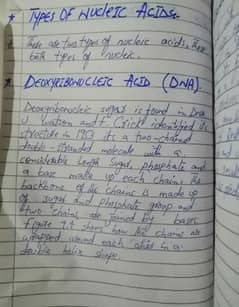 * TYPES OF NUCLEIC ACIDS:-
there are two types of nucleic acids, these
both types of nucleic.
* DEOXYRIBONUCLEIC ACID (DNA).
Deoxyribonucleic sugar is found in DNA
J. Watson and F Crick identified its
structure in 1953 its a two-chained
double-stranded molecule with a
considerable length sugar, phosphate and
a base make up each chains the
backbone of the chains is made up
of sugar and phosphate group and
two chains are joined by bases
figure 9.4 shows how the chains are
wrapped around each other in a
double helix shape.